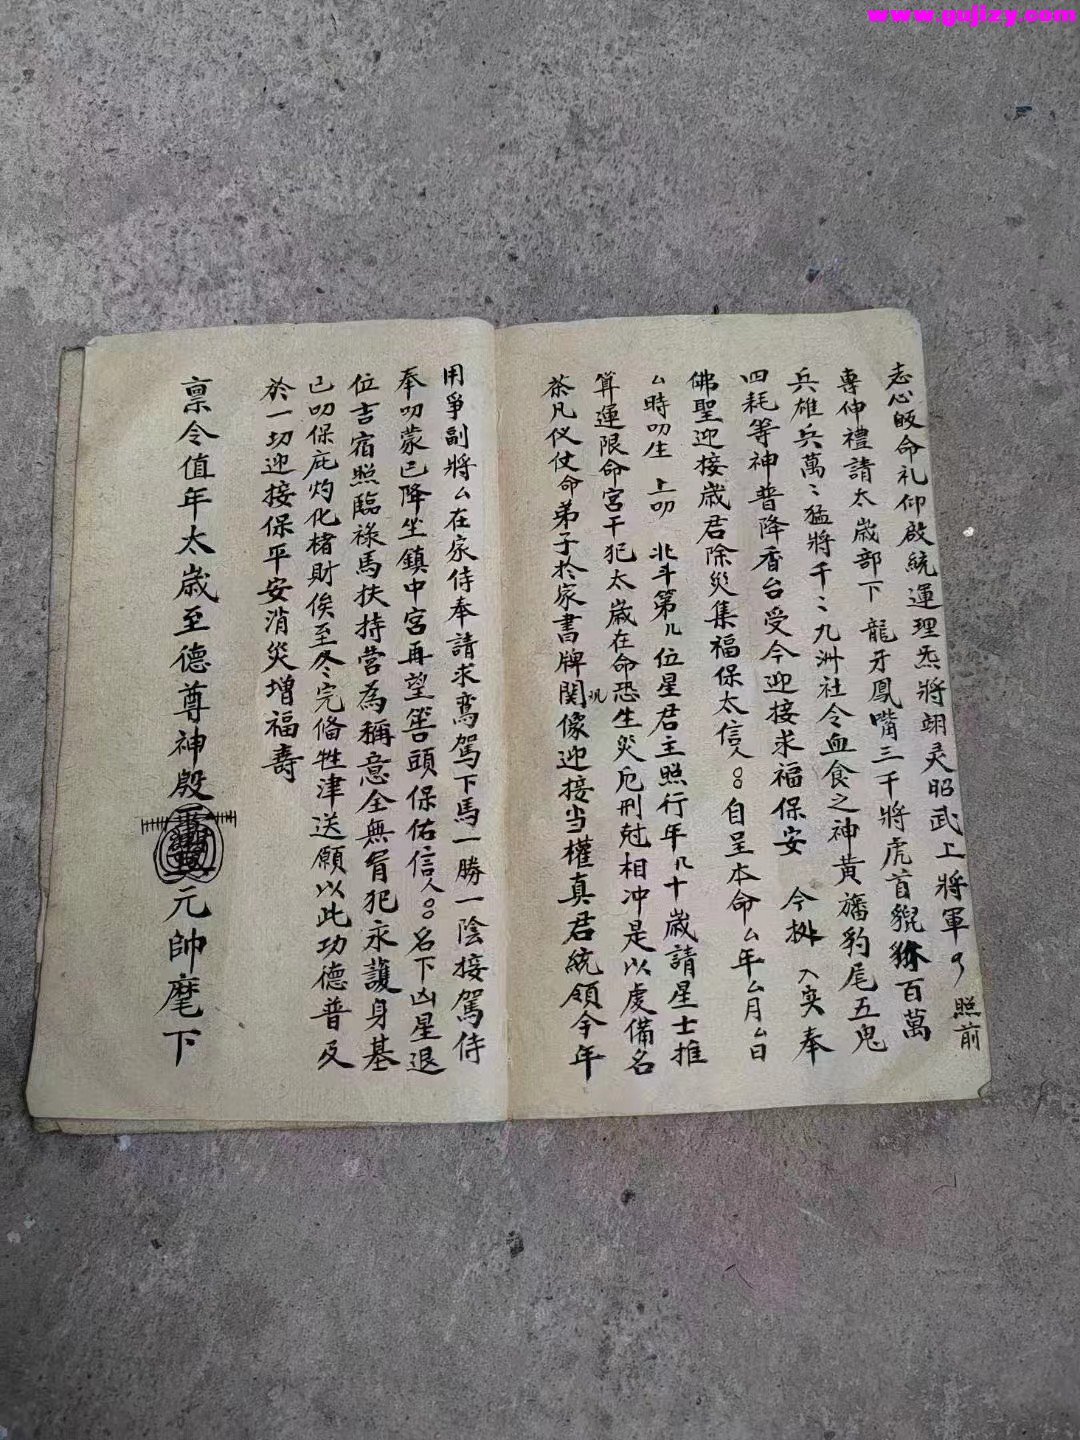 www.gujizy.com
志心皈命礼仰啟統運理炁將翊灵昭武上將軍 照前
專伸禮請太歲部下 龍牙鳳嘴三千將虎首貔貅百萬
兵雄兵萬〻猛將千〻九洲社令血食之神黃旛豹尾五鬼
四耗等神普降香台受今迎接求福保安 今 入实奉
佛聖迎接歲君除災集福保太信人〇〇自呈本命厶年厶月厶日
厶時叨生 上叩 北斗第几位星君主照行年几十歲請星士推
算運限命宮干犯太歲在命恐生災厄刑尅相冲是以虔備名
茶凡仪仗命弟子於家書牌関像迎接当權真君統領今年
用爭副將厶在家侍奉請求鸾駕下馬一勝一陰接駕侍
奉叨蒙已降坐鎮中宮再望筶頭保佑信人〇〇名下凶星退
位吉宿照臨祿馬扶持营為稱意全無肩犯永護身基
已叨保庇灼化楮財俟至冬完俻牲津送願以此功德普及
於一切迎接保平安消災增福壽
禀令值年太歲至德尊神殿元帥麾下